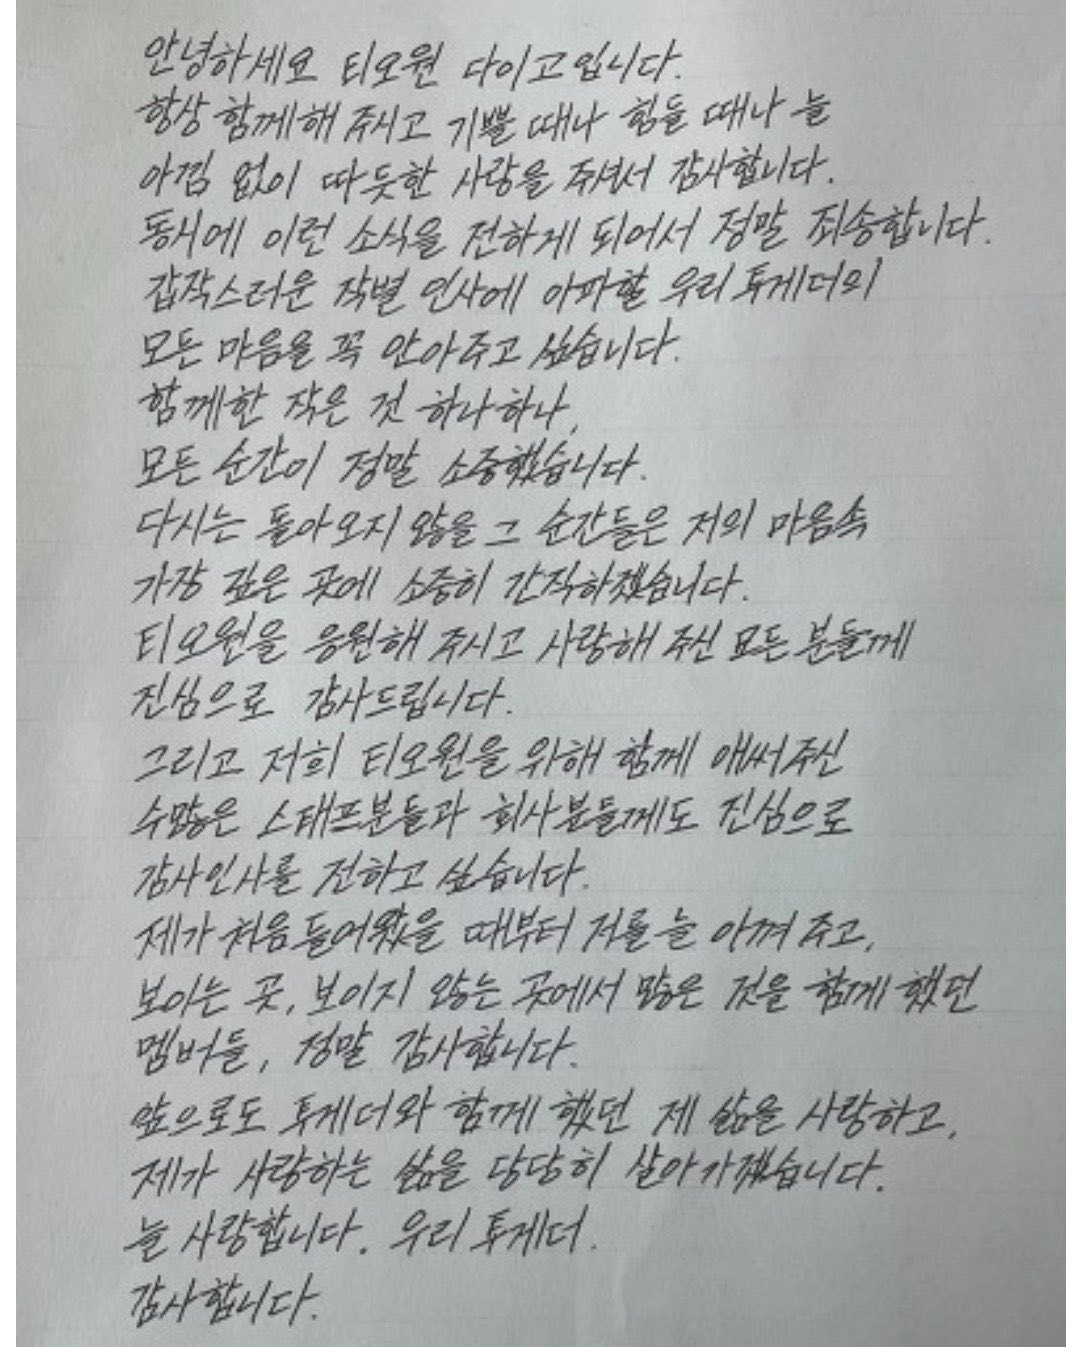 안녕하세요 티오원 다이고입니다.
항상 함께해 주시고 기쁠 때나 힘들 때나 늘
아낌 없이 따듯한 사랑을 주셔서 감사합니다.
동시에 이런 소식을 전하게 되어서 정말 죄송합니다.
갑작스러운 작별 인사에 아파할 우리 투게더의
모든 마음을 꼭 안아주고 싶습니다.
함께한 작은 것 하나하나,
모든 순간이 정말 소중했습니다.
다시는 돌아오지 않을 그 순간들은 저의 마음속
가장 깊은 곳에 소중히 간직하겠습니다.
티오원을 응원해 주시고 사랑해 주신 모든 분들께
진심으로 감사드립니다.
그리고 저희 티오원을 위해 함께 애써주신
수많은 스태프분들과 회사분들께도 진심으로
감사인사를 전하고 싶습니다.
제가 처음 들어왔을 때부터 저를 늘 아껴 주고,
보이는 곳, 보이지 않는 곳에서 많은 것을 함께 했던
멤버들, 정말 감사합니다.
앞으로도 투게더와 함께 했던 제 삶을 사랑하고,
제가 사랑하는 삶을 당당히 살아가겠습니다.
늘 사랑합니다. 우리 투게더.
감사합니다.